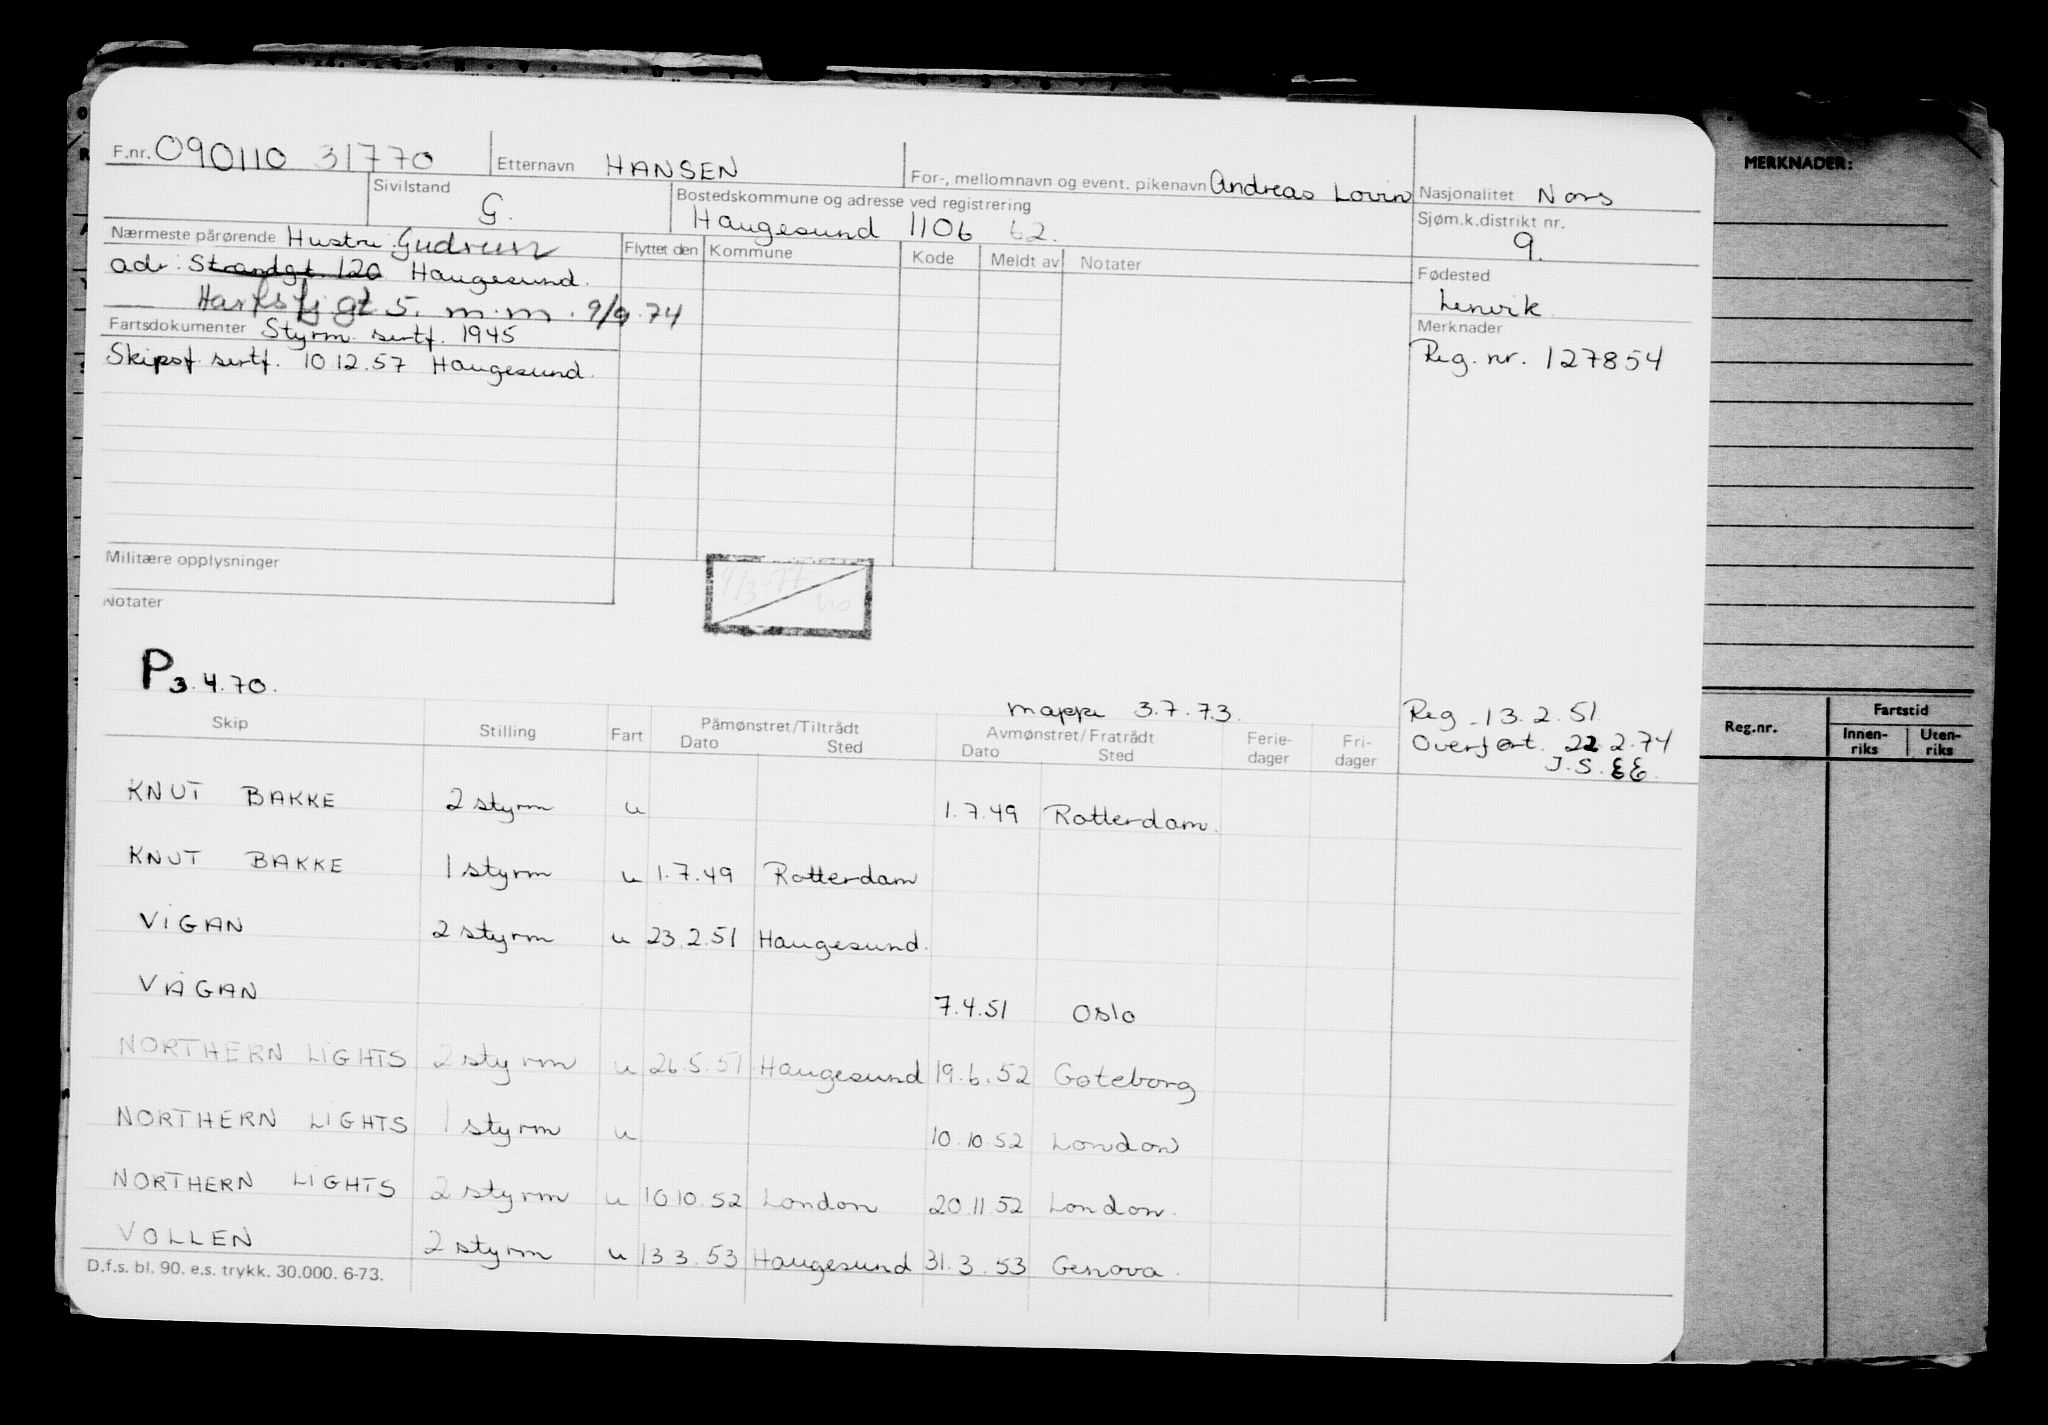 F.nr. 090110 31770 Etternavn HANSEN For-, mellomnavn og event. pikenavn Andreas Lovin Nasjonalitet Nors
Sivilstand G. Bostedskommune og adresse ved registrering Haugesund 1106 62. Sjøm.k.distrikt nr. 9.
Nærmeste pårørende Hustru Gudrun Flyttet den Kommune Kode Meldt av Notater
adr: Strandgt. 120 Haugesund.
gt. 5. m.m. 9/9.74
Fødested
Lenvik
Fartsdokumenter Styrm sertf. 1945
Skipsf. sertf. 10.12.57 Haugesund.
Merknader
Reg. nr. 127854
Militære opplysninger
9/3-77
Notater
P 3.4.70.
mappe 3.7.73.
Reg. 13.2.51
Overført. 22.2.74
J.S. EE.
Skip Stilling Fart Påmønstret/Tiltrådt Dato Sted Avmønstret/Fratrådt Dato Sted Ferie-dager Fri-dager
KNUT BAKKE 2 styrm u 1.7.49 Rotterdam.
KNUT BAKKE 1 styrm u 1.7.49 Rotterdam
VIGAN 2 styrm u 23.2.51 Haugesund.
VÅGAN 7.4.51 Oslo
NORTHERN LIGHTS 2 styrm u 26.5.51 Haugesund 19.6.52 Gøteborg
NORTHERN LIGHTS 1 styrm u 10.10.52 London
NORTHERN LIGHTS 2 styrm u 10.10.52 London 20.11.52 London.
VOLLEN 2 styrm u 13.3.53 Haugesund 31.3.53 Genova.
D.f.s. bl. 90. e.s. trykk. 30.000. 6-73.
MERKNADER:
Reg.nr. Fartstid
Innen-riks Uten-riks